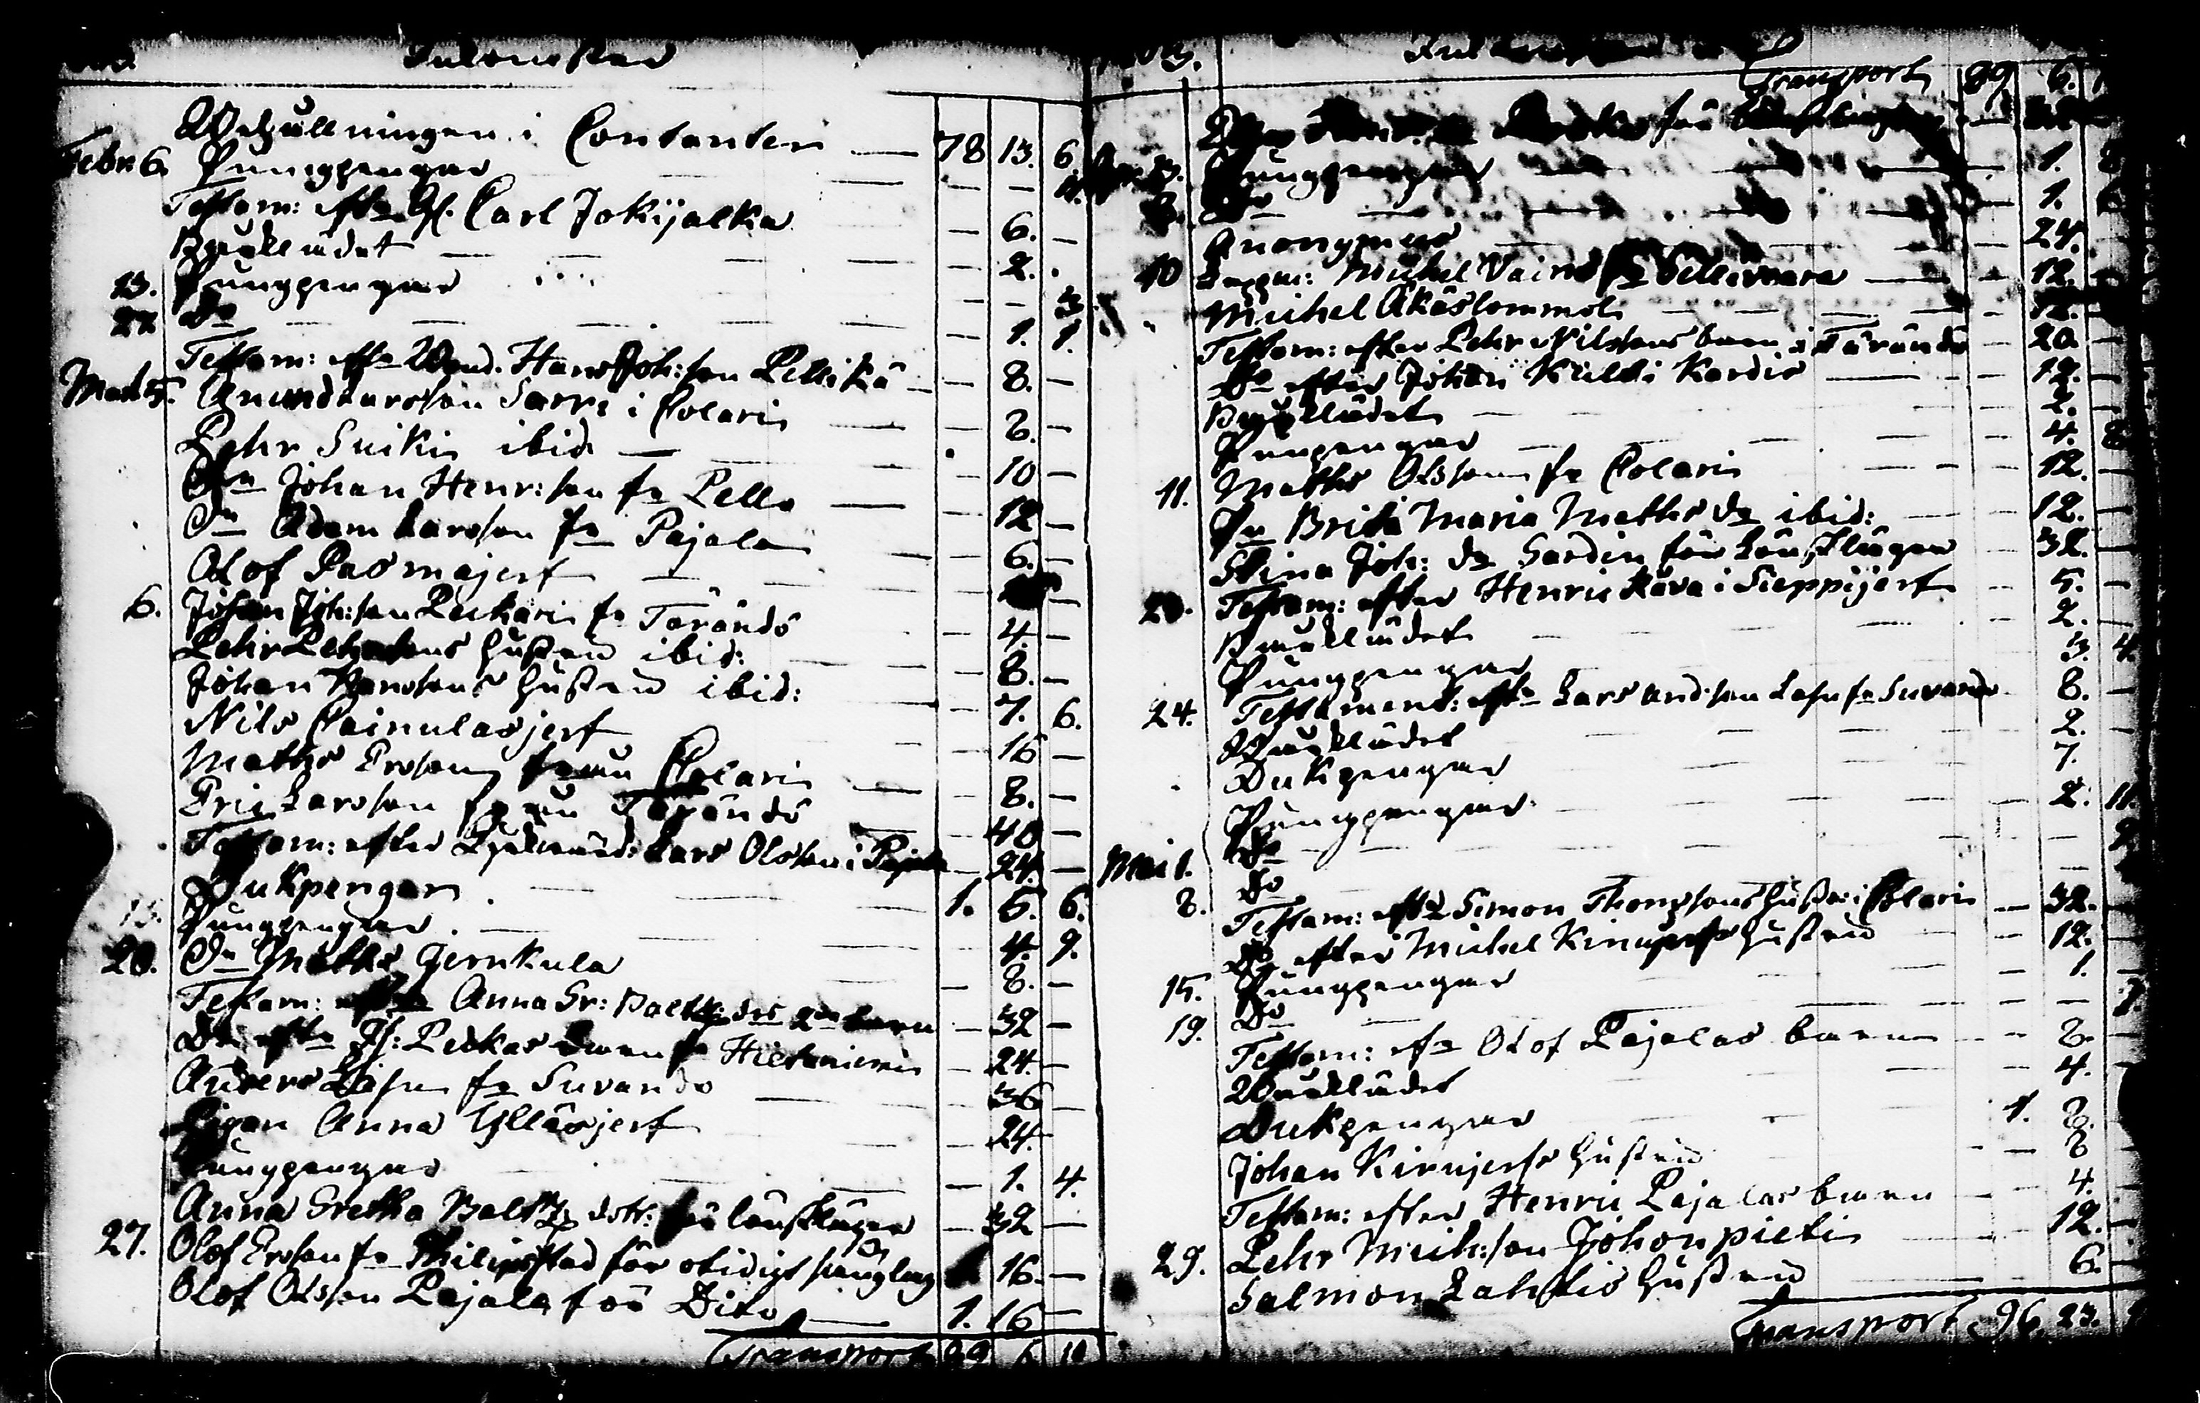 Inkomster
Behållningen i Contanter — 78 13. 6
Febr. 6. Pungpengar
Testam: efter Carl Jokijalka — 6. —
Bårklädet — 2.
13. Pungpengar — 3
27. Do — 1. 1.
Testam: eftr Hans Joh:son Pellikä — 8. —
Mart. 5. Amund Larsson Sarri i Colari — 8. —
Pehr Suiki ibid — 10 —
Dn Johan Henr:son fr Pello — 12 —
Dn Adam Larsson fr Pajala — 6. —
Olof Pasmajerf
6. Johan Joh:son Peckari fr Tärändö — 4. —
Pehr Pehrsons hustru ibid: — 8. —
Johan Hanssons hustru ibid: — 7. 6.
Nils Cainulasjerf — 16 —
Maths Ersson från Colari — 8. —
Eric Larsson från Tärändö — 40 —
Testam: efter Lars Olsson i Pajala — 24. —
Dukpengar — 1. 5. 6.
13. Pungpengar — 4. 9.
20. Dn Maths Jernkula — 8. —
Testam: efter Anna Gr: Balth: drs 2ne barn — 32 —
Do eftr Peckas barn fr Hietaniemi — 24. —
Anders Lasu fr Suvando — 36 —
Pigan Anna Ylläsjerf — 24. —
Pungpengar — 1. 4.
Anna Gretha Balthz dott: för lönskläger — 32 —
27. Olof Ersson fr Philipstad för otidigt sänglag — 16. —
Olof Olsson Pajala för Dito — 1. 16 —
Transport 99 6 10
Transport 99 6.
Pungpengar — 1. 8
Do — 1.
Anonymus — 24.
10 Lappm: Michel Vaino fr Gellivaara — 12.
Michel Äkäslommol — 12.
Testam: efter Pehr Nilssons barn i Tärändö — 20
Do efter Johan Kuldi Kardis — 12.
Bårklädet — 2.
Pungpengar — 4. 8
11. Maths Olsson fr Colari — 12.
Pn Brita Maria Maths dr ibid: — 12.
Stina Joh: dr Sardin för Lönskläger — 32.
20. Testam: efter Henric Räva i Sieppijerf — 5. —
Bårklädet — 2.
Pungpengar — 3. 4.
24. Testament: eftr Lars And:son Lasu fr Suvando — 8. —
Bårklädet — 2. —
Dukpengar — 7.
Pungpengar — 2. 11.
Do
Mai 1. Do
8. Testam: eftr Simon Thompsons hustr: i Colari — 32. —
Do efter Michel Kirnujerfs hustru — 12. —
15. Pungpengar — 1.
19. Do
Testam: eftr Olof Pajalas barn — 8. —
Bårklädet — 4. —
Dukpengar 1. 8.
Johan Kirnujerfs hustru — 8
Testam: efter Henric Pajalas barn — 4. —
29. Pehr Mich:son Johonpieti — 12. —
Salmon Lahtis hustru — 6. —
Transport 96. 23.